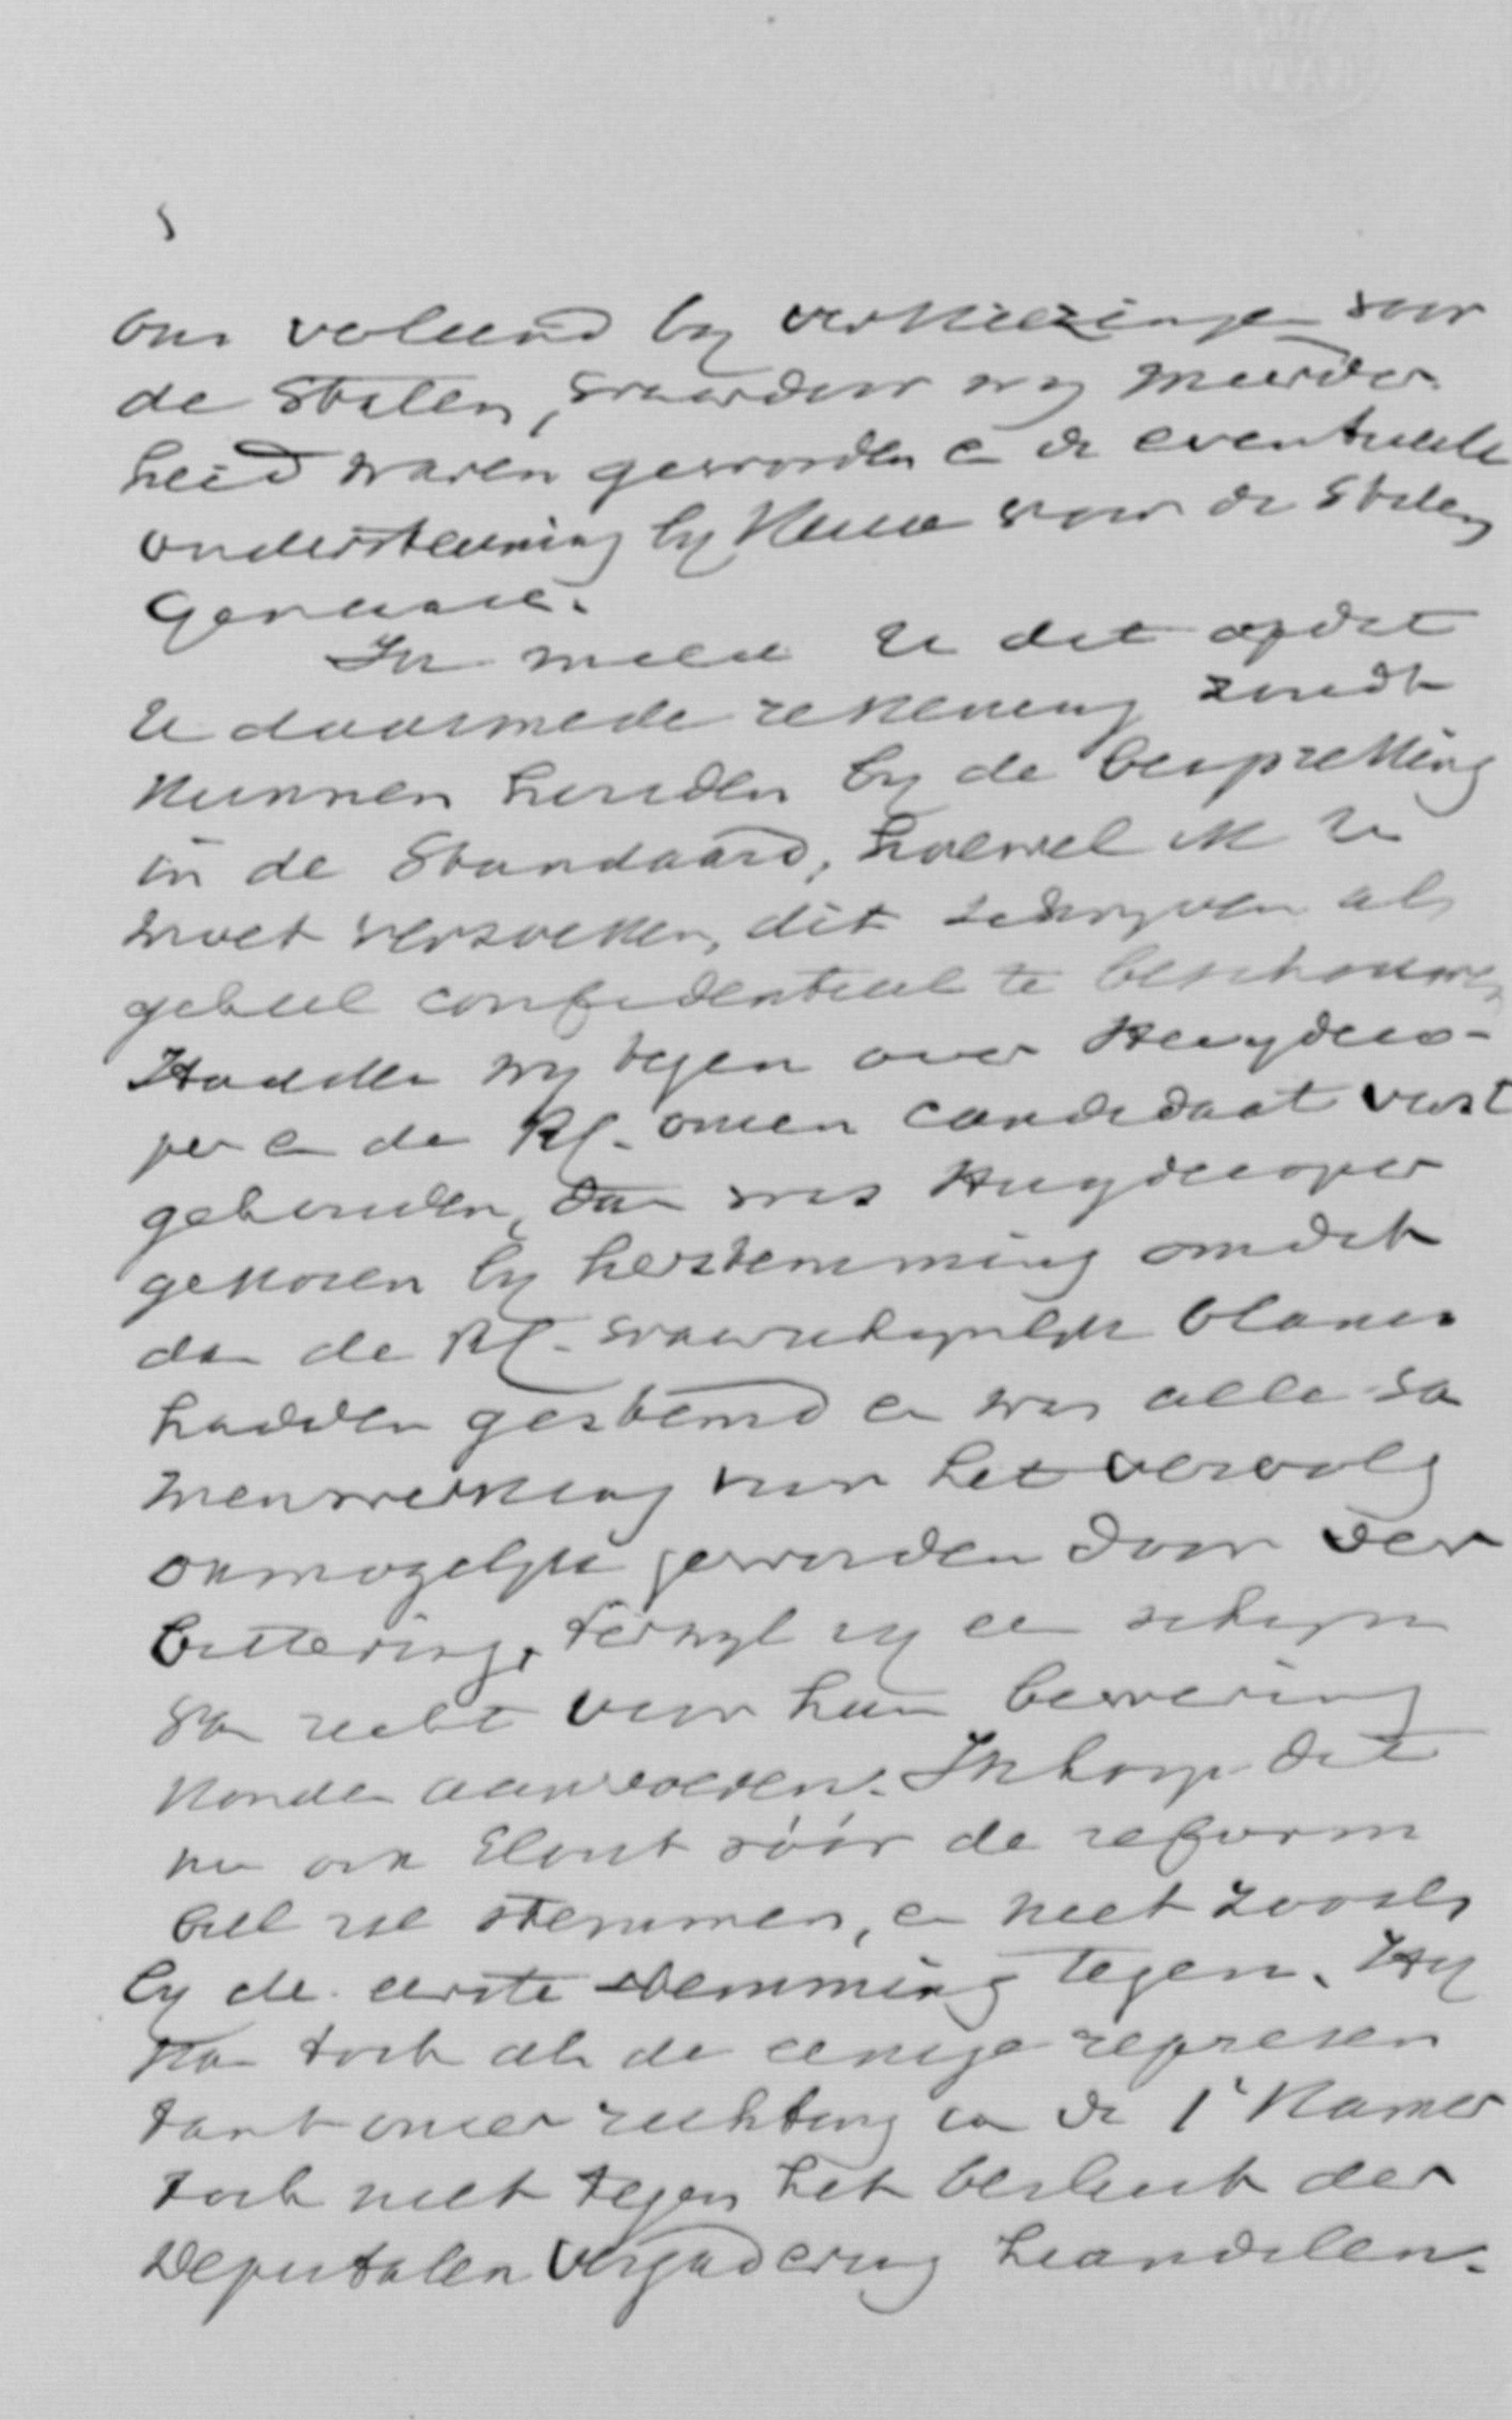 ons verleend by verkiezingen voor
de Staten, waardoor wy meerder
heid waren geworden en de eventueele
ondersteuning by keuze voor de Staten
Generaal.
Ik meld U dit opdat
U daarmede rekening zoudt
kunnen houden by de bespreking
in de Standaard, hoewel ik U
moet verzoeken, dit schryven als
geheel confidentieel te beschouwen
Hadden wy tegen over Huydeco-
per en de RC. onzen candidaat vast
gehouden, dan was Huydecoper
gekozen by herstemming omdat
dan de RC. waarschynlyk blanco
hadden gestemd en was alle sa
menwerking voor het vervolg
onmogelyk geworden door ver
bittering, terwyl zy een schyn
van recht voor hun bewering
konden aanvoeren. Ik hoop dat
nu ook Elout vóór de reform
bill zal stemmen, en niet zooals
by de eerste stemming tegen. Hy
kan toch als de eenige represen
tant onzer richting in de 1e Kamer
toch niet tegen het besluit der
Deputaten Vergadering handelen.